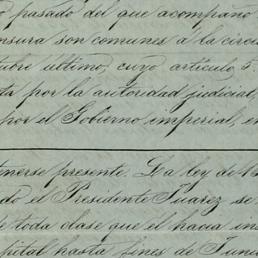 o pasado del que acompaño
nsura son comunes a la circu
ubre ultimo, cuyo artículo 5
ta por la autoridad judicial,
por el Gobierno imperial, e
enerse presente. La ley de 18
do el Presidente Juarez se
de toda clase que el hacia in
pital hasta fines de Juni